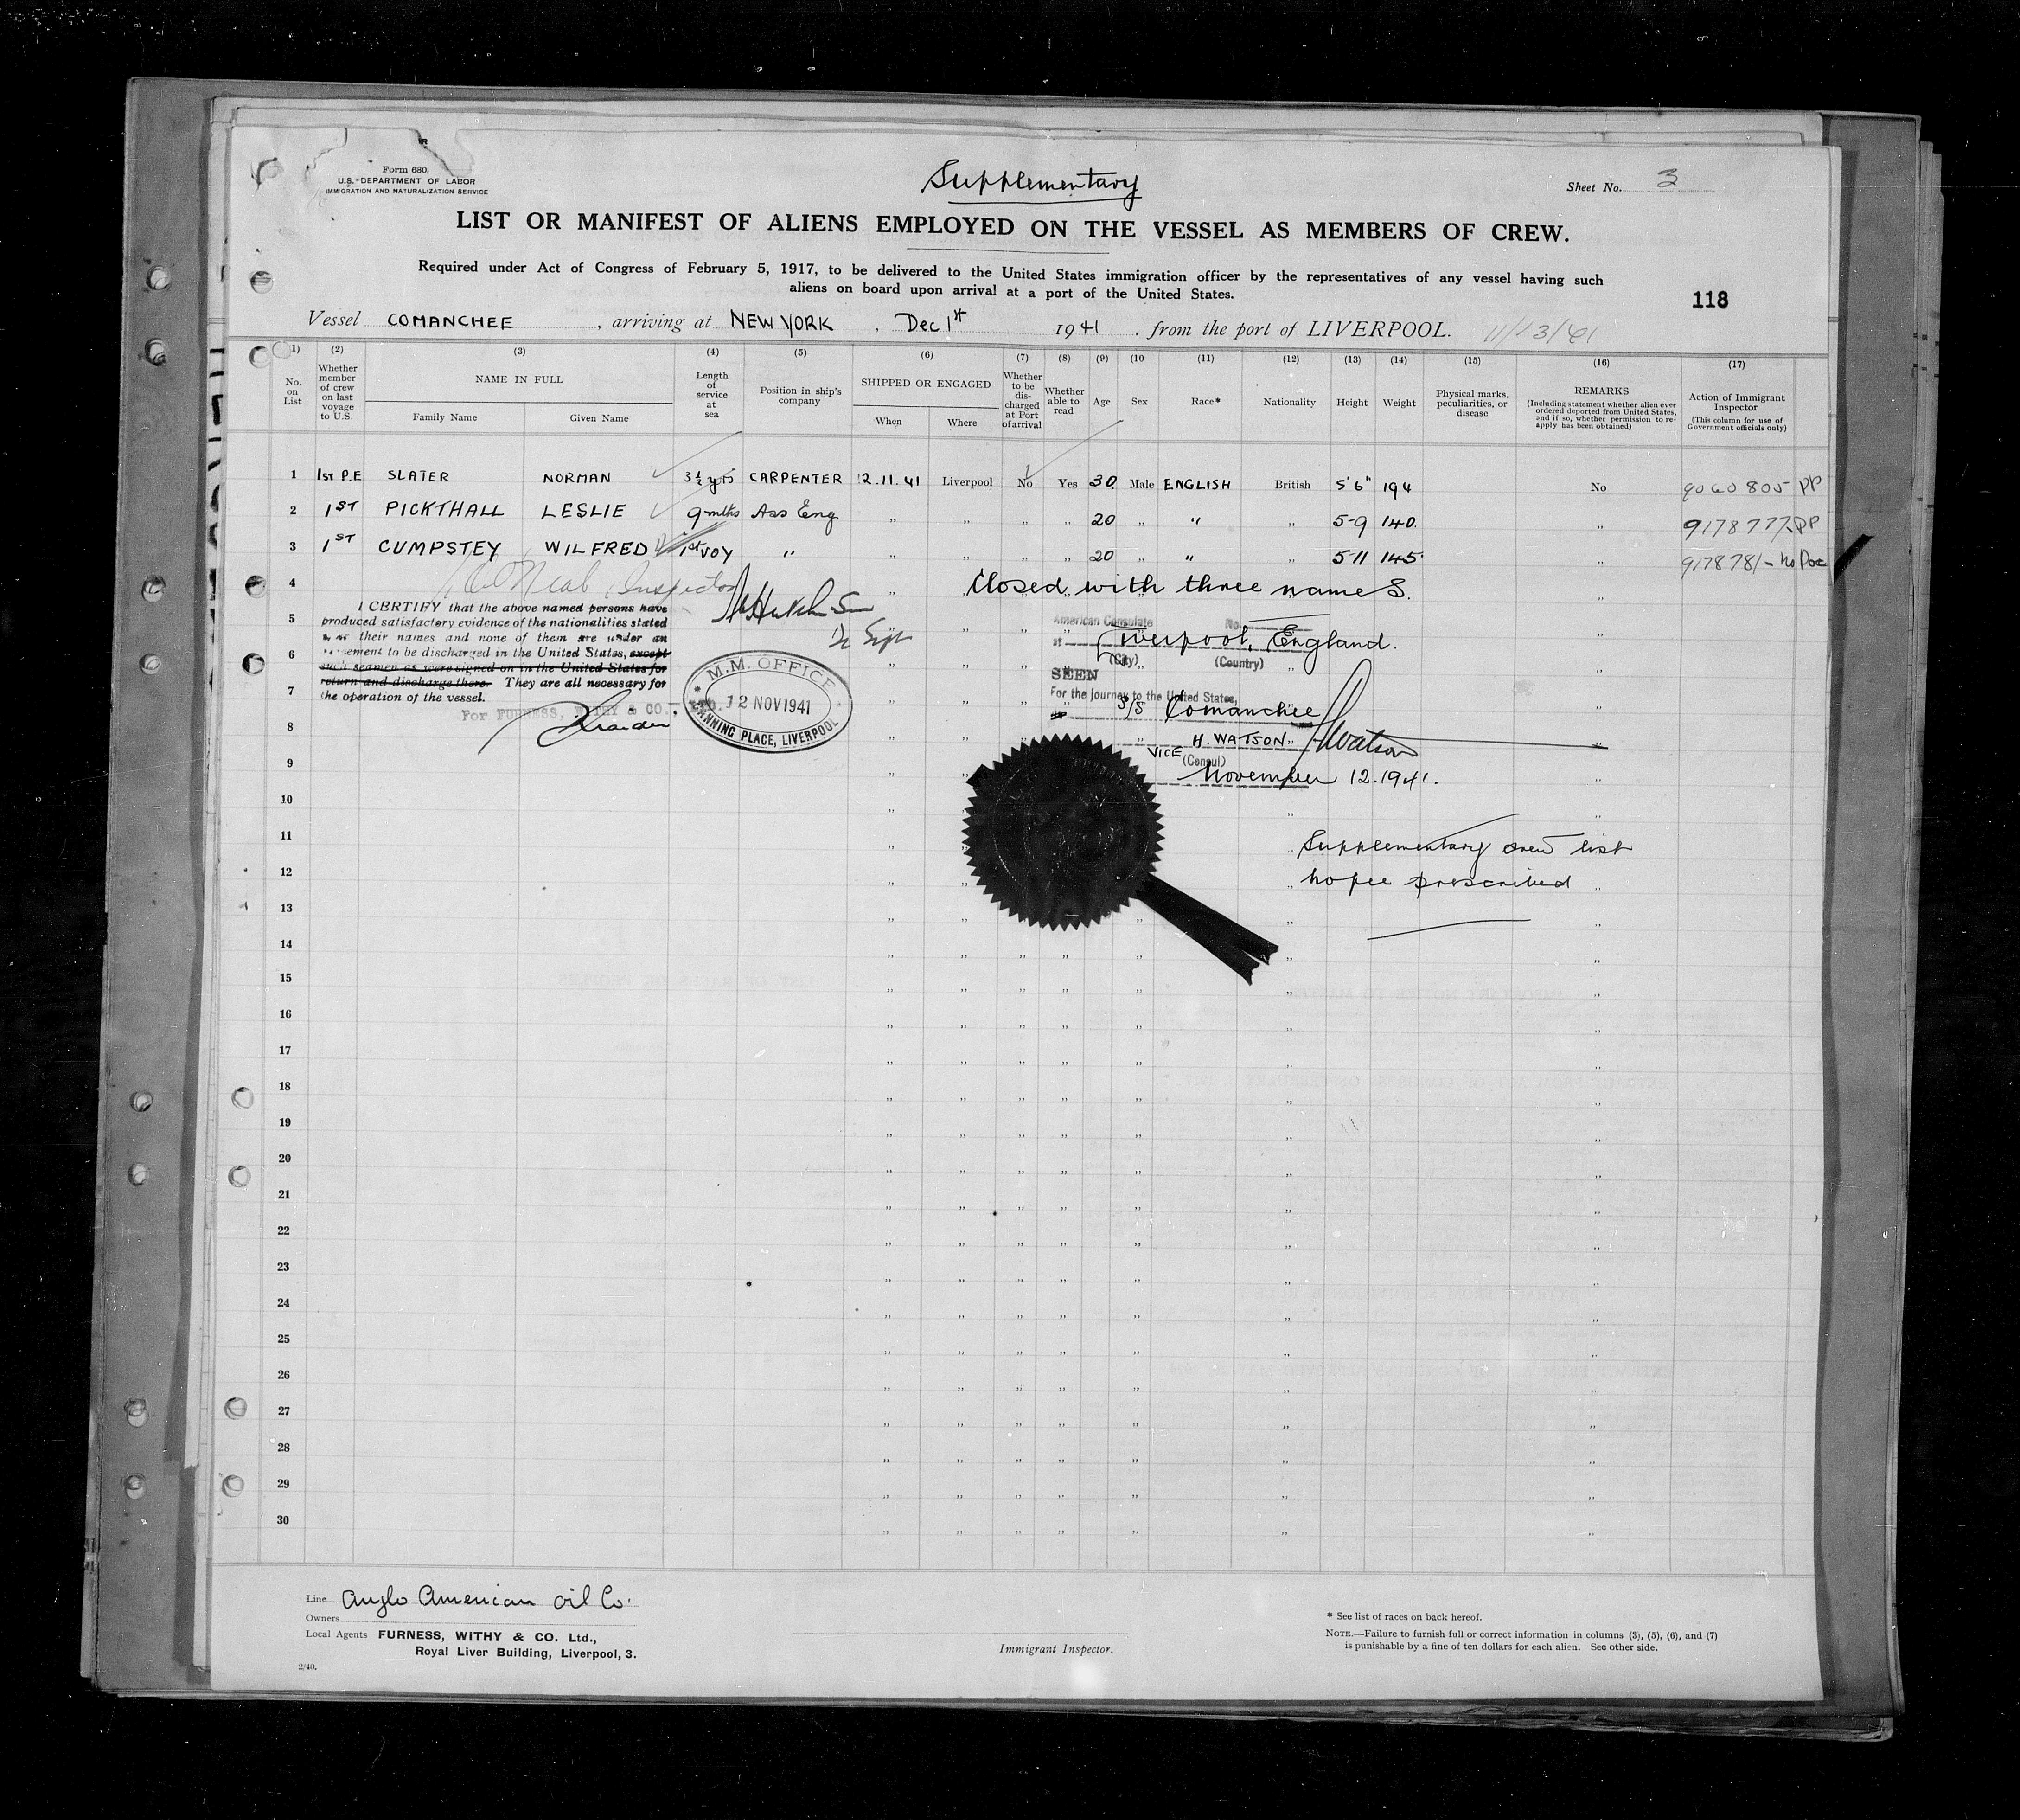 Form 680.
U.S. DEPARTMENT OF LABOR
IMMIGRATION AND NATURALIZATION SERVICE
Supplementary
Sheet No. 3
LIST OR MANIFEST OF ALIENS EMPLOYED ON THE VESSEL AS MEMBERS OF CREW.
Required under Act of Congress of February 5, 1917, to be delivered to the United States immigration officer by the representatives of any vessel having such
aliens on board upon arrival at a port of the United States.
118
Vessel COMANCHEE, arriving at NEW YORK, Dec 1st 1941, from the port of LIVERPOOL.
(1) (2) (3) (4) (5) (6) (7) (8) (9) (10 (11) (12) (13) (14) (15) (16) (17)
No. on List
Whether member of crew on last voyage to U.S.
NAME IN FULL
Family Name
Given Name
Length of service at sea
Position in ship's company
SHIPPED OR ENGAGED
When
Where
Whether to be discharged at Port of arrival
Whether able to read
Age
Sex
Race*
Nationality
Height
Weight
Physical marks, peculiarities, or disease
REMARKS
(Including statement whether alien ever ordered deported from United States, and if so, whether permission to re-apply has been obtained)
Action of Immigrant Inspector
(This column for use of Government officials only)
1 1ST P.E SLATER NORMAN 3½ yrs CARPENTER 12.11.41 Liverpool No Yes 30 Male ENGLISH British 5'6" 194 No 9060805 PP
2 1ST PICKTHALL LESLIE 9 mths Ass Eng " " " " 20 " " " 5-9 140. " 9178777-PP
3 1ST CUMPSTEY WILFRED 1st VOY " " " " " 20 " " " 5-11 145 " 9178781 - No Doc
4 Closed with three names.
5
6
7
8
9
10
11
12
13
14
15
16
17
18
19
20
21
22
23
24
25
26
27
28
29
30
Inspector
I CERTIFY that the above named persons have
produced satisfactory evidence of the nationalities stated
their names and none of them are under an
to be discharged in the United States, except
such seamen as were signed on in the United States for
return and discharge there. They are all necessary for
the operation of the vessel.
For FURNESS, WITHY & CO., LTD.
M.M. OFFICE
12 NOV 1941
CANNING PLACE, LIVERPOOL
American Consulate No.
at Liverpool, England.
(City) (Country)
SEEN
For the journey to the United States,
S/S Comanchee
H. WATSON HWatson
VICE (Consul)
November 12. 1941.
Supplementary crew list
no fee prescribed
Line Anglo American Oil Co.
Owners
Local Agents FURNESS, WITHY & CO. Ltd.,
Royal Liver Building, Liverpool, 3.
2/40.
Immigrant Inspector.
* See list of races on back hereof.
NOTE.—Failure to furnish full or correct information in columns (3), (5), (6), and (7)
is punishable by a fine of ten dollars for each alien. See other side.